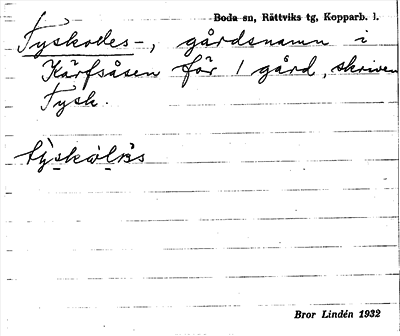 Boda sn, Rättviks tg, Kopparb. l.
Tyskodes-, gårdsnamn i
Kärfsåsen för 1 gård, skriven
Tysk.
Bror Lindén 1932